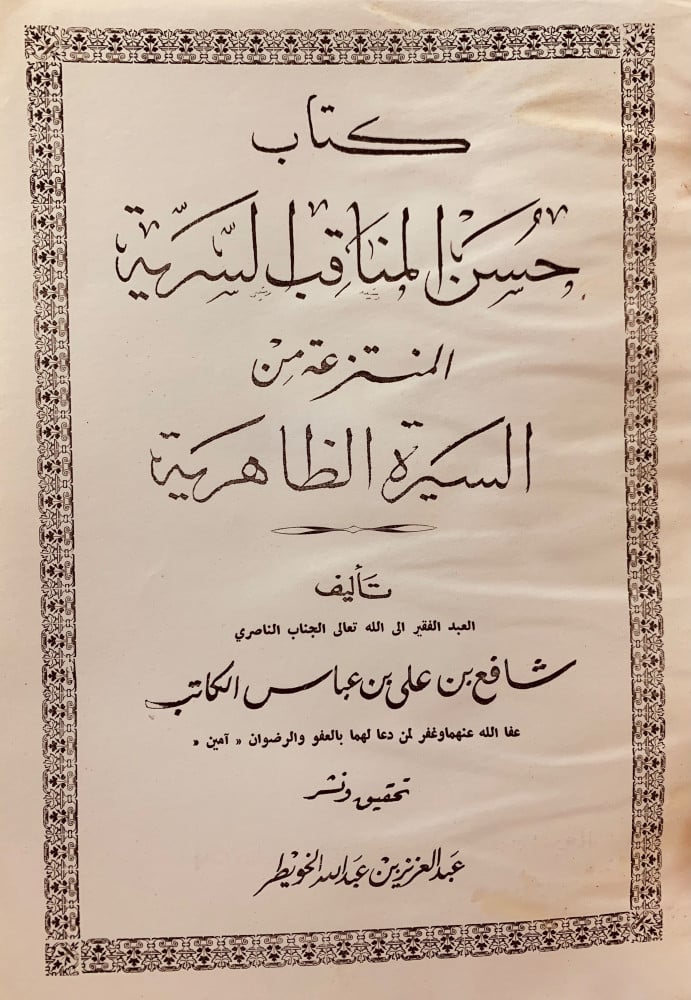 كتاب
حُسن المناقب السّريّة
المنتزعة من
السيرة الظاهرية
تأليف
العبد الفقير الى الله تعالى الجناب الناصري
شافع بن على بن عباس الكاتب
عفا الله عنهما وغفر لمن دعا لهما بالعفو والرضوان « آمين »
تحقيق ونشر
عبد العزيز بن عبد الله الخويطر